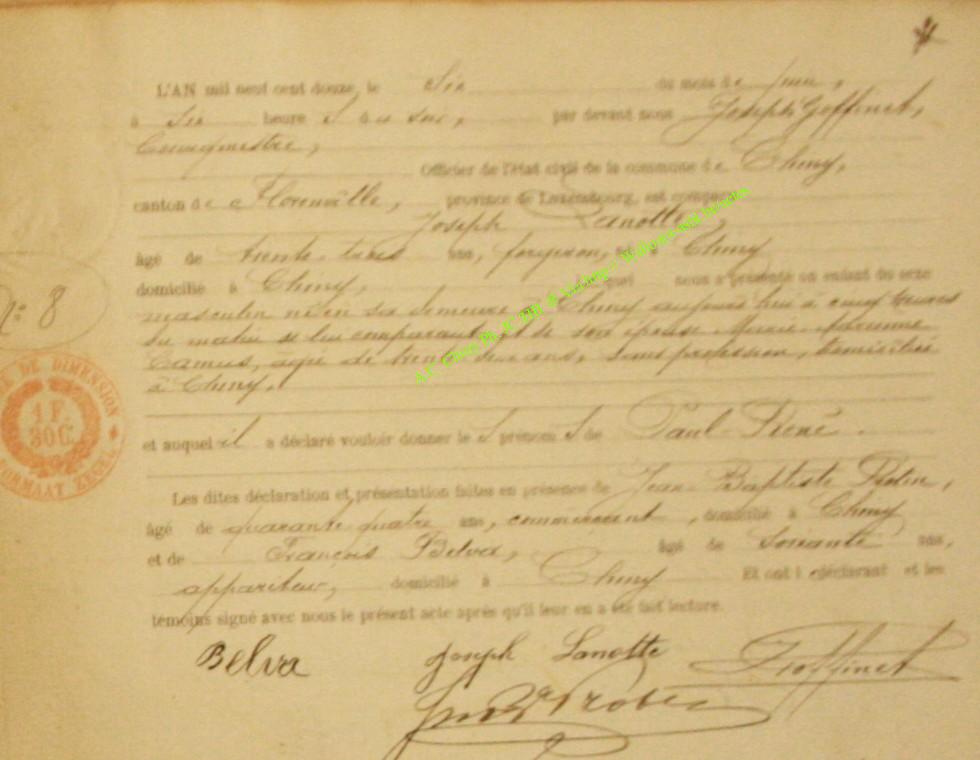 L'AN mil neuf cent douze, le Six du mois de juin,
à Six heures du soir, par devant nous Joseph Goffinet,
Bourgmestre,
Officier de l'état civil de la commune de Chiny,
canton de Florenville, province de Luxembourg, est comparu
Joseph Lanotte,
âgé de trente-trois ans, forgeron, né à Chiny
domicilié à Chiny, lequel nous a présenté un enfant du sexe
masculin né en sa demeure à Chiny aujourd'hui à cinq heures
du matin de lui comparant et de son épouse Marie
Camus, âgée de trente deux ans, sans profession, domiciliée
à Chiny.
N° 8
DE DIMENSION
1 F.
30 C.
FORMAAT ZEGEL
et auquel il a déclaré vouloir donner les prénoms de Paul René.
Les dites déclaration et présentation faites en présence de Jean Baptiste
âgé de quarante quatre ans, commerçant, domicilié à Chiny
et de François Belva, âgé de soixante ans,
appariteur, domicilié à Chiny Et ont le déclarant et les
témoins signé avec nous le présent acte après qu'il leur en a été fait lecture.
Belva Joseph Lanotte Goffinet